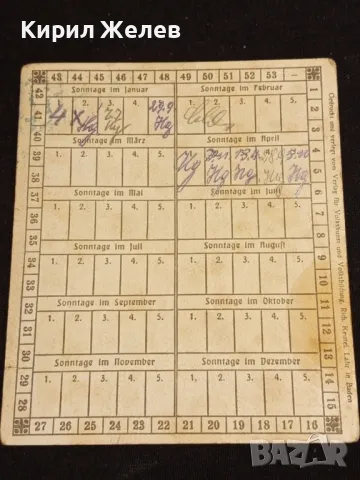 Кирил Желев
43 44 45 46 47 48 49 50 51 52 53 —
42 Sonntage im Januar Sonntage im Februar 1
1. 2. 3. 4. 5. 1. 2. 3. 4. 5.
41 2
40 Sonntage im März Sonntage im April 3
39 1. 2. 3. 4. 5. 4
38 Sonntage im Mai Sonntage im Juni 5
37 1. 2. 3. 4. 5. 1. 2. 3. 4. 5. 6
36 7
35 Sonntage im Juli Sonntage im August 8
34 1. 2. 3. 4. 5. 1. 2. 3. 4. 5. 9
33 10
32 Sonntage im September Sonntage im Oktober 11
31 1. 2. 3. 4. 5. 1. 2. 3. 4. 5. 12
30 Sonntage im November Sonntage im Dezember 13
29 1. 2. 3. 4. 5. 1. 2. 3. 4. 5. 14
28 15
27 26 25 24 23 22 21 20 19 18 17 16
Gedruckt und verlegt vom Verlag für Volkskunst und Volksbildung, Rich. Keutel, Lahr in Baden
bazar